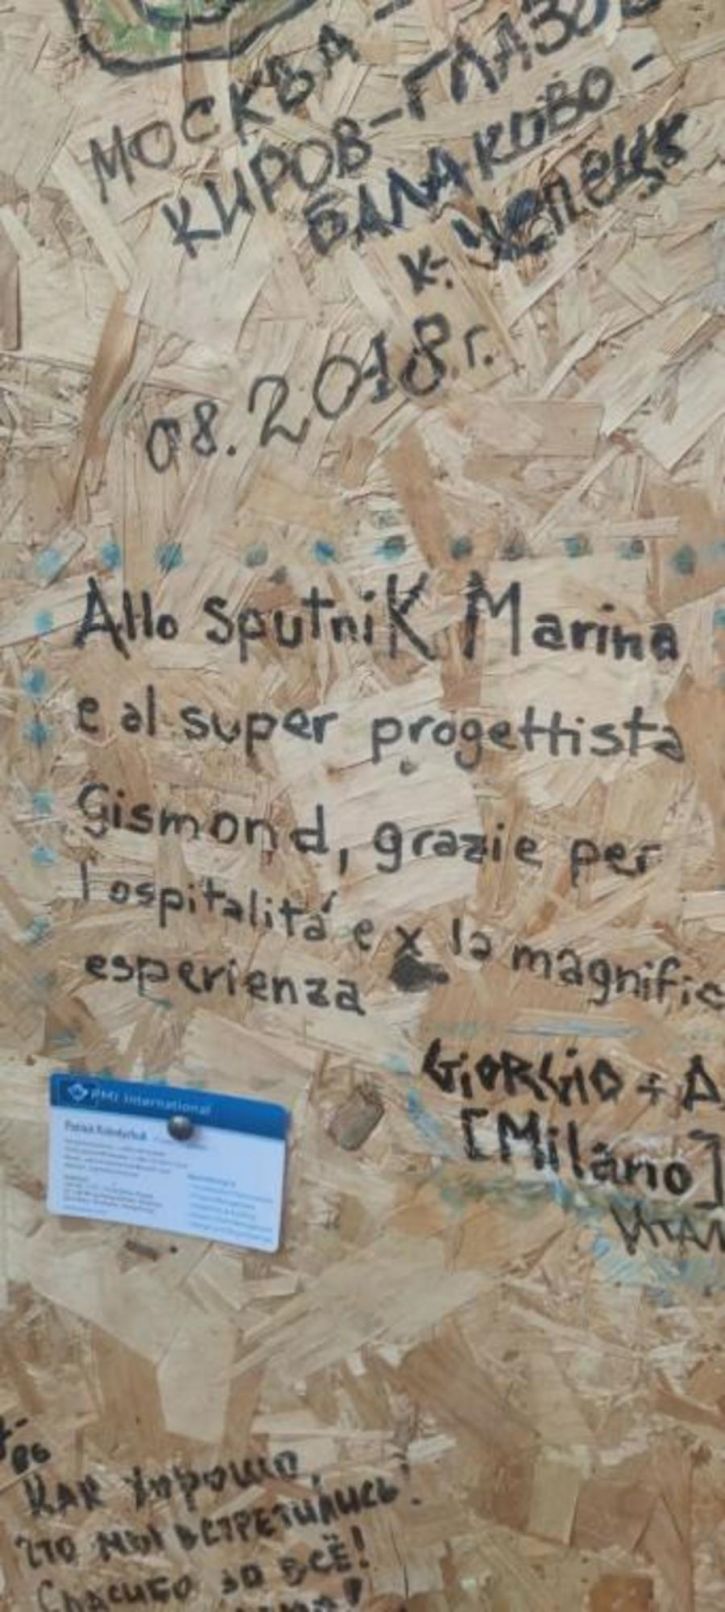 МОСКВА -
КИРОВ-ГЛАЗОВ
БАЛАКОВО -
К. Чепецк
08.2018г.
Allo sputniK Marina
e al super progettista
Gismond, grazie per
l'ospitalitá e x la magnific
esperienza
GiORGiO + A
[Milano]
PMI International
КАК Хорошо,
ЧТО МЫ ВСТРЕТИЛИСЬ!
Спасибо за ВСЁ!